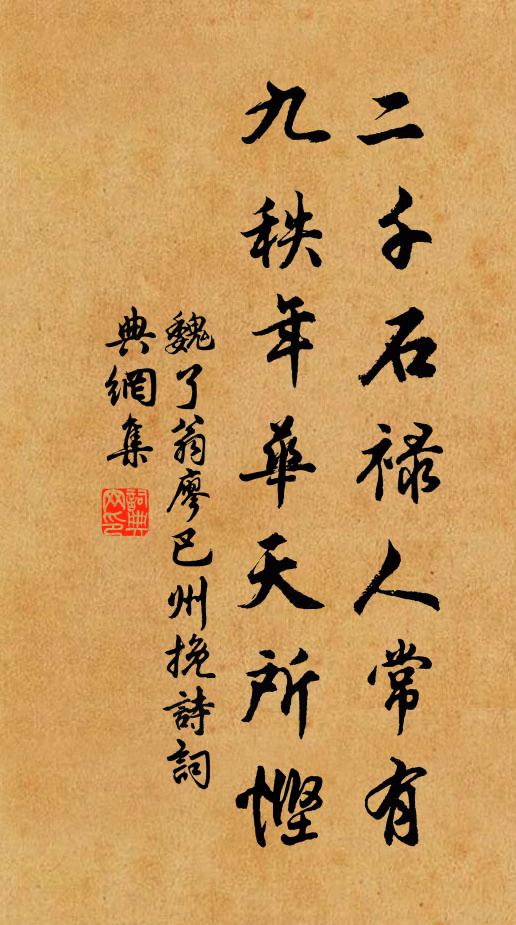 二千石禄人常有
九秩年華天所慳
魏了翁廖巴州挽詩詞
典網集
詞典网印